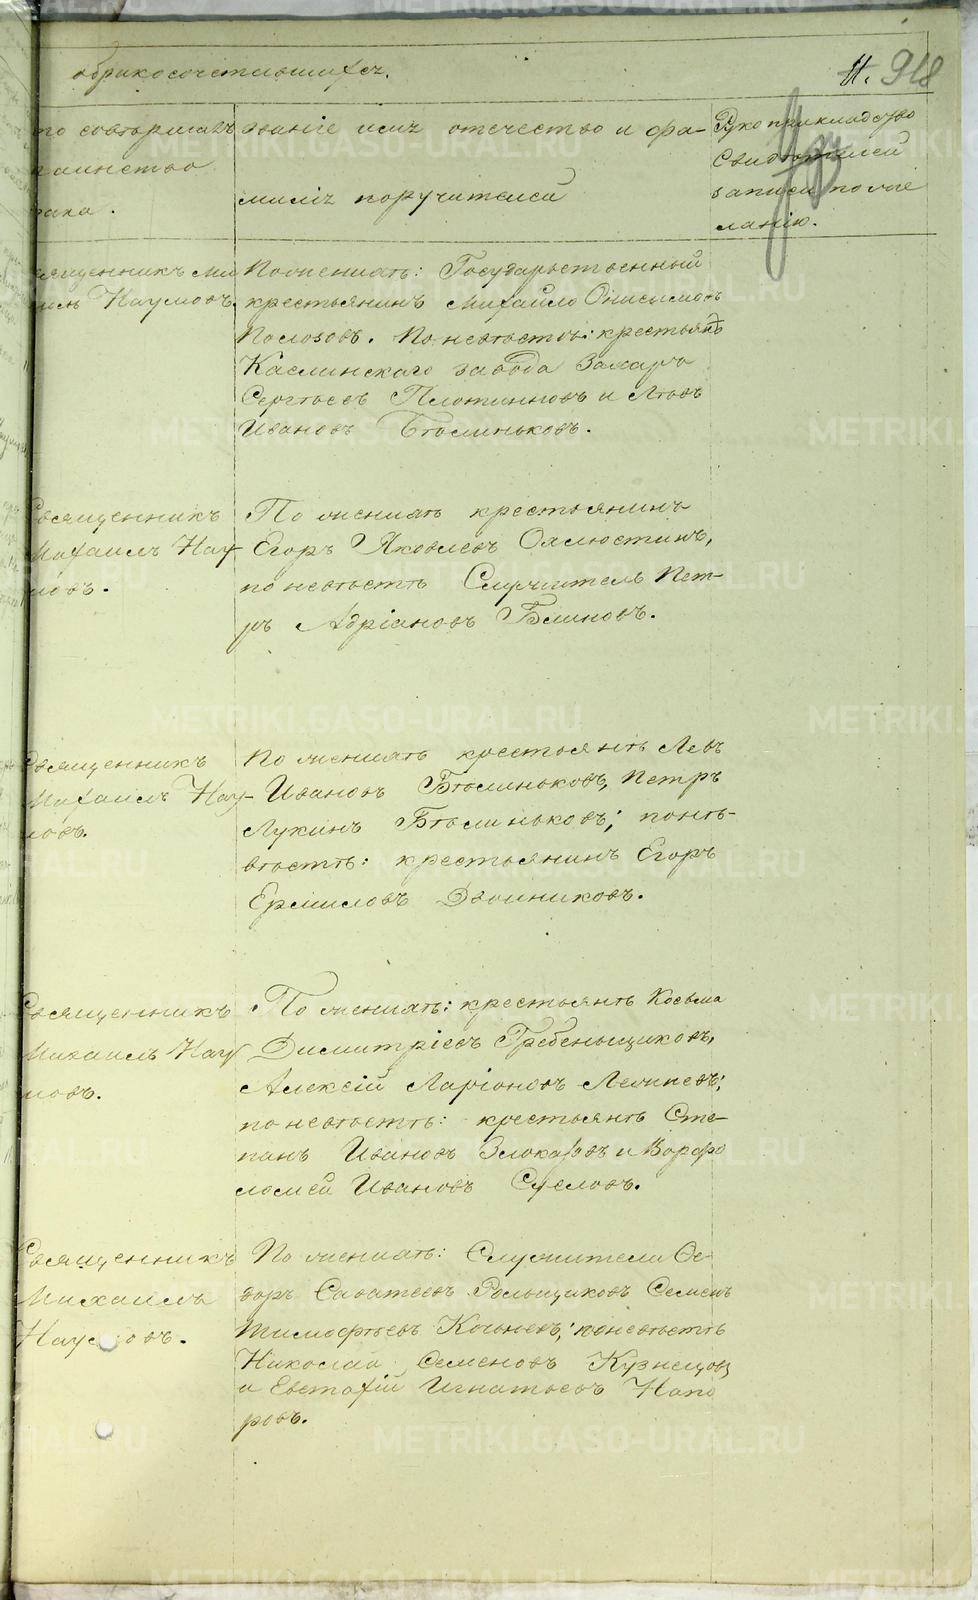 о бракосочетавшихся.
11. 918
то совершалъ
таинство
рака.
званіе имя отечество и фа-
милія поручителей
Рукоприкладство
свидѣтелей
записи по же
ланію.
вященникъ Ми
Наумовъ.
По женихѣ: Государственный
крестьянинъ Михайло Онисимовъ
Полозовъ. По невѣстѣ: крестьяне
Каслинскаго завода Захаръ
Сергѣевъ Плотинновъ и Левъ
Ивановъ Бѣлиньковъ.
Священникъ
Михаилъ Нау
мовъ.
По женихѣ крестьянинъ
Егоръ Яковлевъ
по невѣстѣ Служитель Пет-
ръ Адріановъ Блиновъ.
Священникъ
Михаилъ Нау-
мовъ.
По женихѣ крестьянѣ Левъ
Ивановъ Бѣлиньковъ, Петръ
Лукинъ Бѣлиньковъ; по нѣ-
вѣстѣ: крестьянинъ Егоръ
Ермиловъ Двойниковъ.
Священникъ
Михаилъ Нау
мовъ.
По женихѣ: крестьянѣ Косьма
Димитріевъ Гребеньщиковъ,
Алексѣй Ларіоновъ
по невѣстѣ: крестьянѣ Сте-
панъ Ивановъ Злоказовъ и Варфо
ломей Ивановъ Суеловъ.
Священникъ
Михаилъ
Наумовъ.
По женихѣ: Служители Ѳе-
доръ Саватеевъ Рольщиковъ Семенъ
Тимофѣевъ по невѣстѣ
Николай Семеновъ Кузнецовъ
и Евстафій Игнатьевъ
ровъ.
METRIKI.GASO-URAL.RU